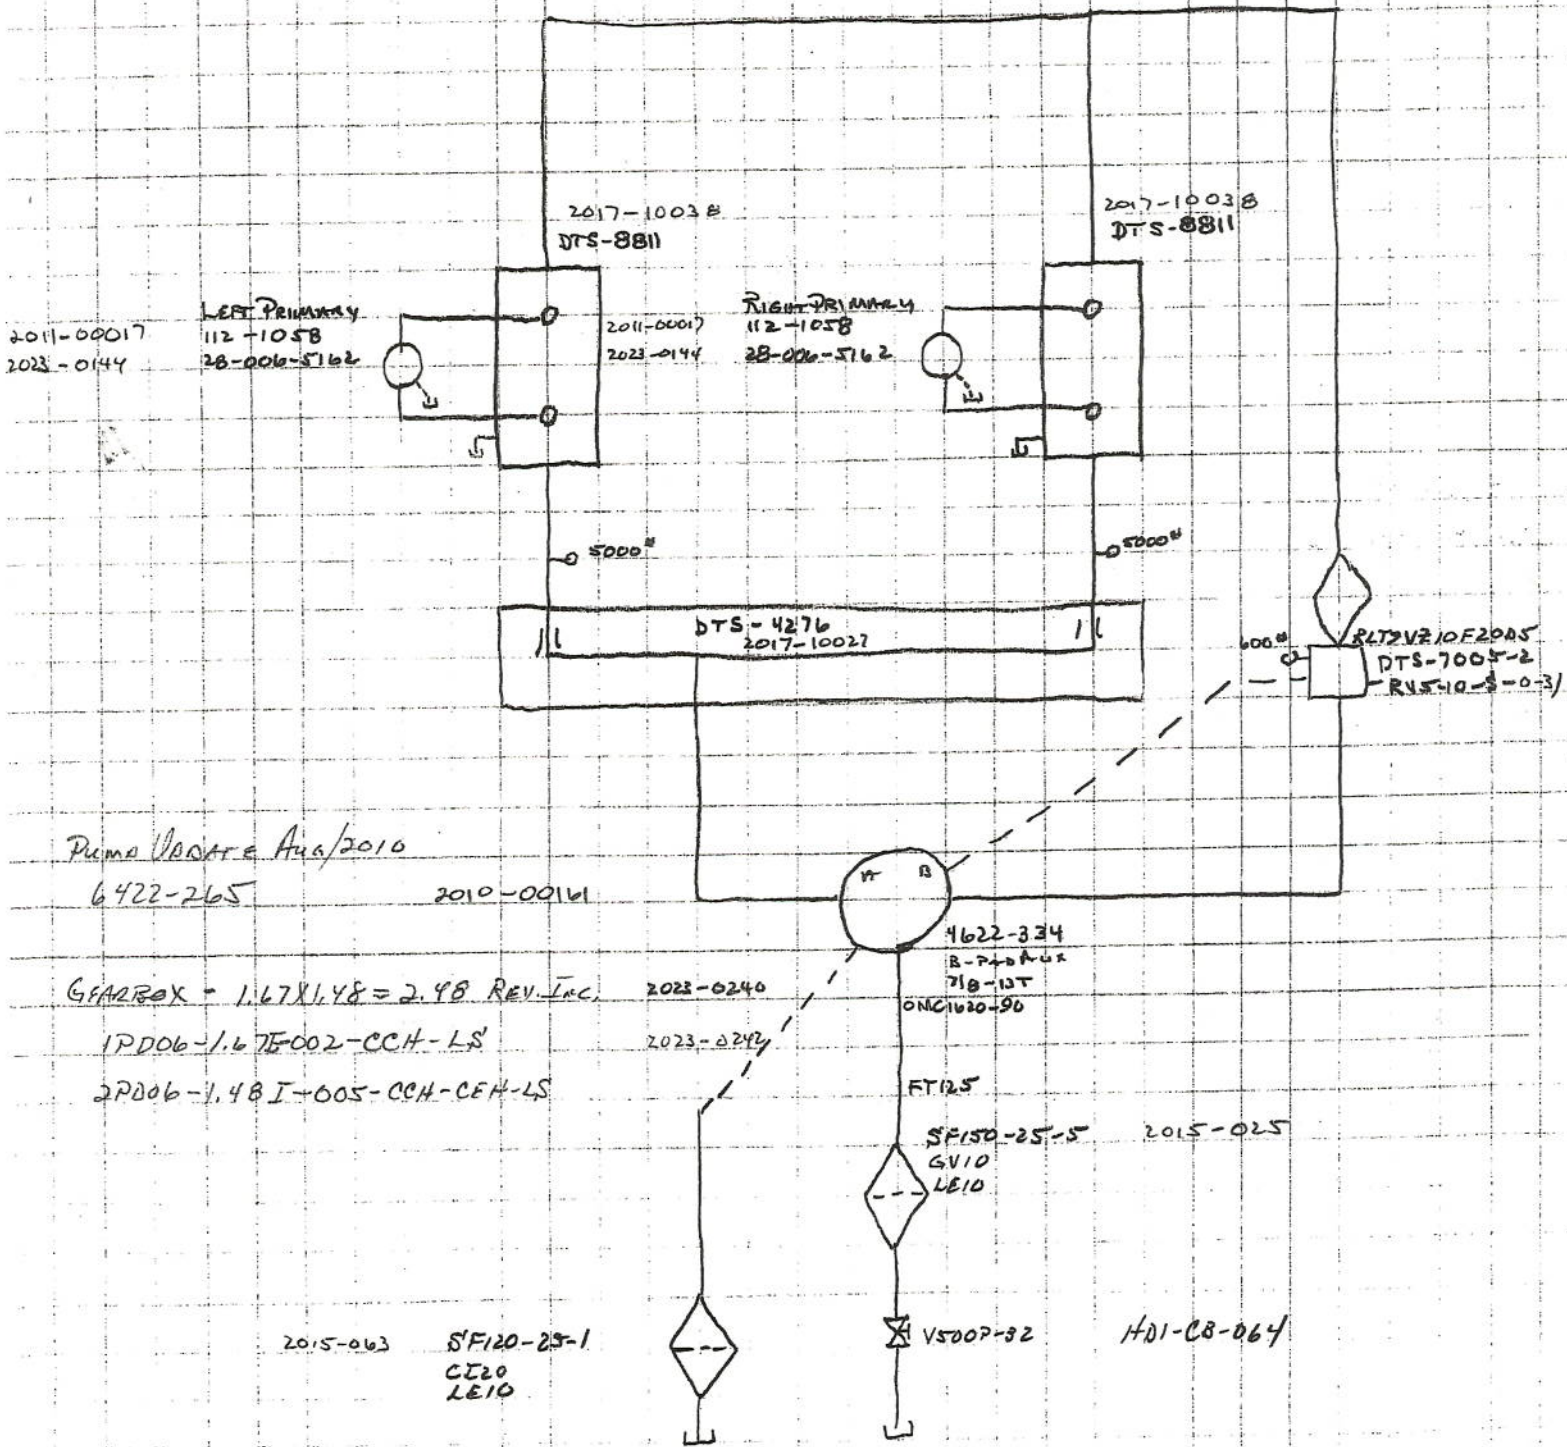 2017-10038
DTS-8811
2017-10038
DTS-8811
2011-00017
2023-0144
LEFT PRIMARY
112-1058
28-006-5162
2011-00017
2023-0144
RIGHT PRIMARY
112-1058
28-006-5162
5000#
5000#
DTS-4276
2017-10027
600#
RLT2VZ10F20D5
DTS-7005-2
RV5-10-S-0-31
PUMP UPDATE AUG/2010
6422-265
2010-00161
A
B
4622-334
B-PAD AUX
7/8-13T
GEARBOX - 1.67X1.48 = 2.48 REV. INC.
1PD06-1.67E-002-CCH-LS
2PD06-1.48I-005-CCH-CEH-LS
2023-0240
2023-0242
FT125
SF150-25-5
GV10
LE10
2015-025
2015-063
SF120-25-1
CI20
LE10
V500P-32
HDI-CB-064